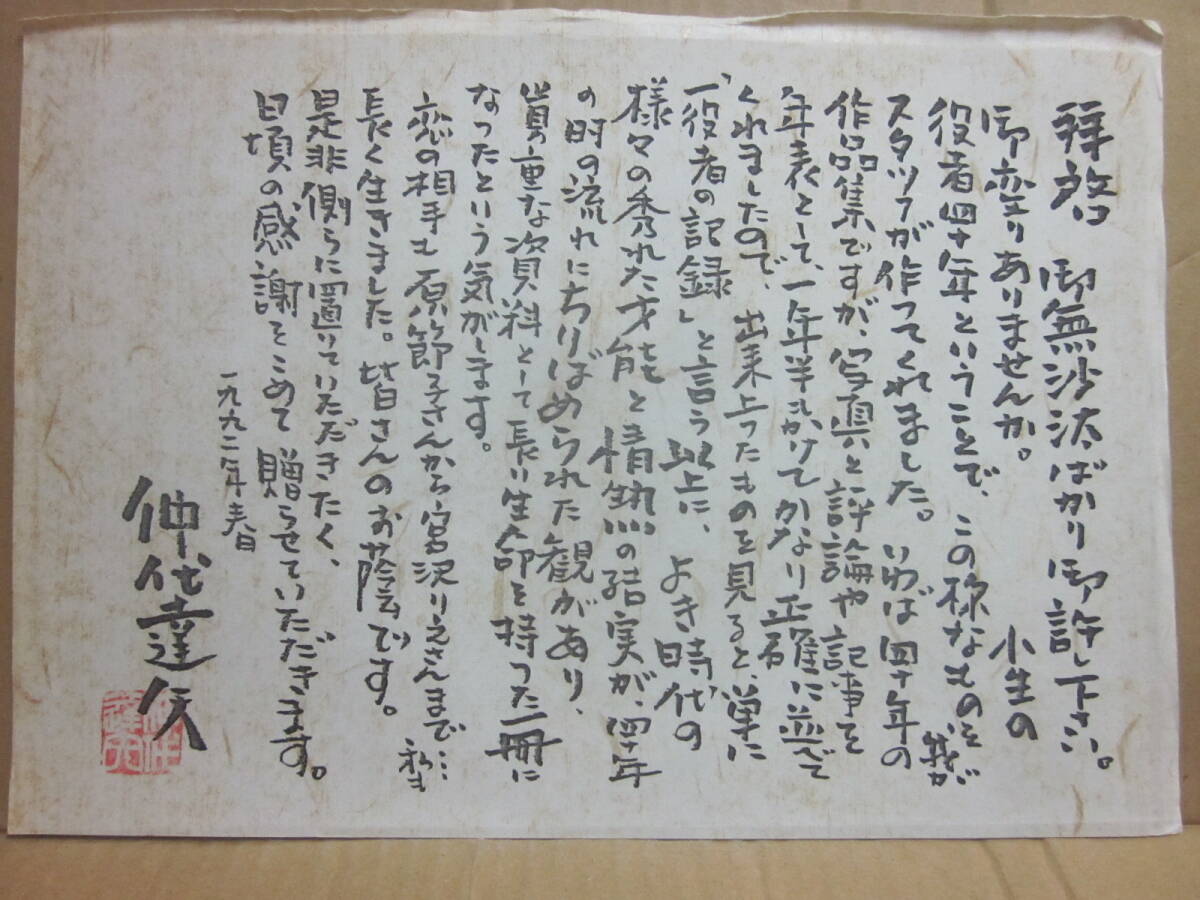 拝啓 御無沙汰ばかり御許し下さい。
御変りありませんか。 小生の
役者四十年ということで、この様なものを我が
スタッフが作ってくれました。いわば四十年の
作品集ですが、写真と評論や記事を
年表として、一年半もかけてかなり正確に並べて
くれましたので、出来上ったものを見ると、単に
「役者の記録」と言う以上に、よき時代の
様々の秀れた才能と情熱の結実が、四十年
の時の流れにちりばめられた観があり、
貴重な資料として長い生命を持った一冊に
なったという気がします。
恋の相手も原節子さんから宮沢りえさんまで…私も
長く生きました。皆さんのお蔭です。
是非側らに置いていただきたく、
日頃の感謝をこめて贈らせていただきます。
一九九二年春
仲代達矢